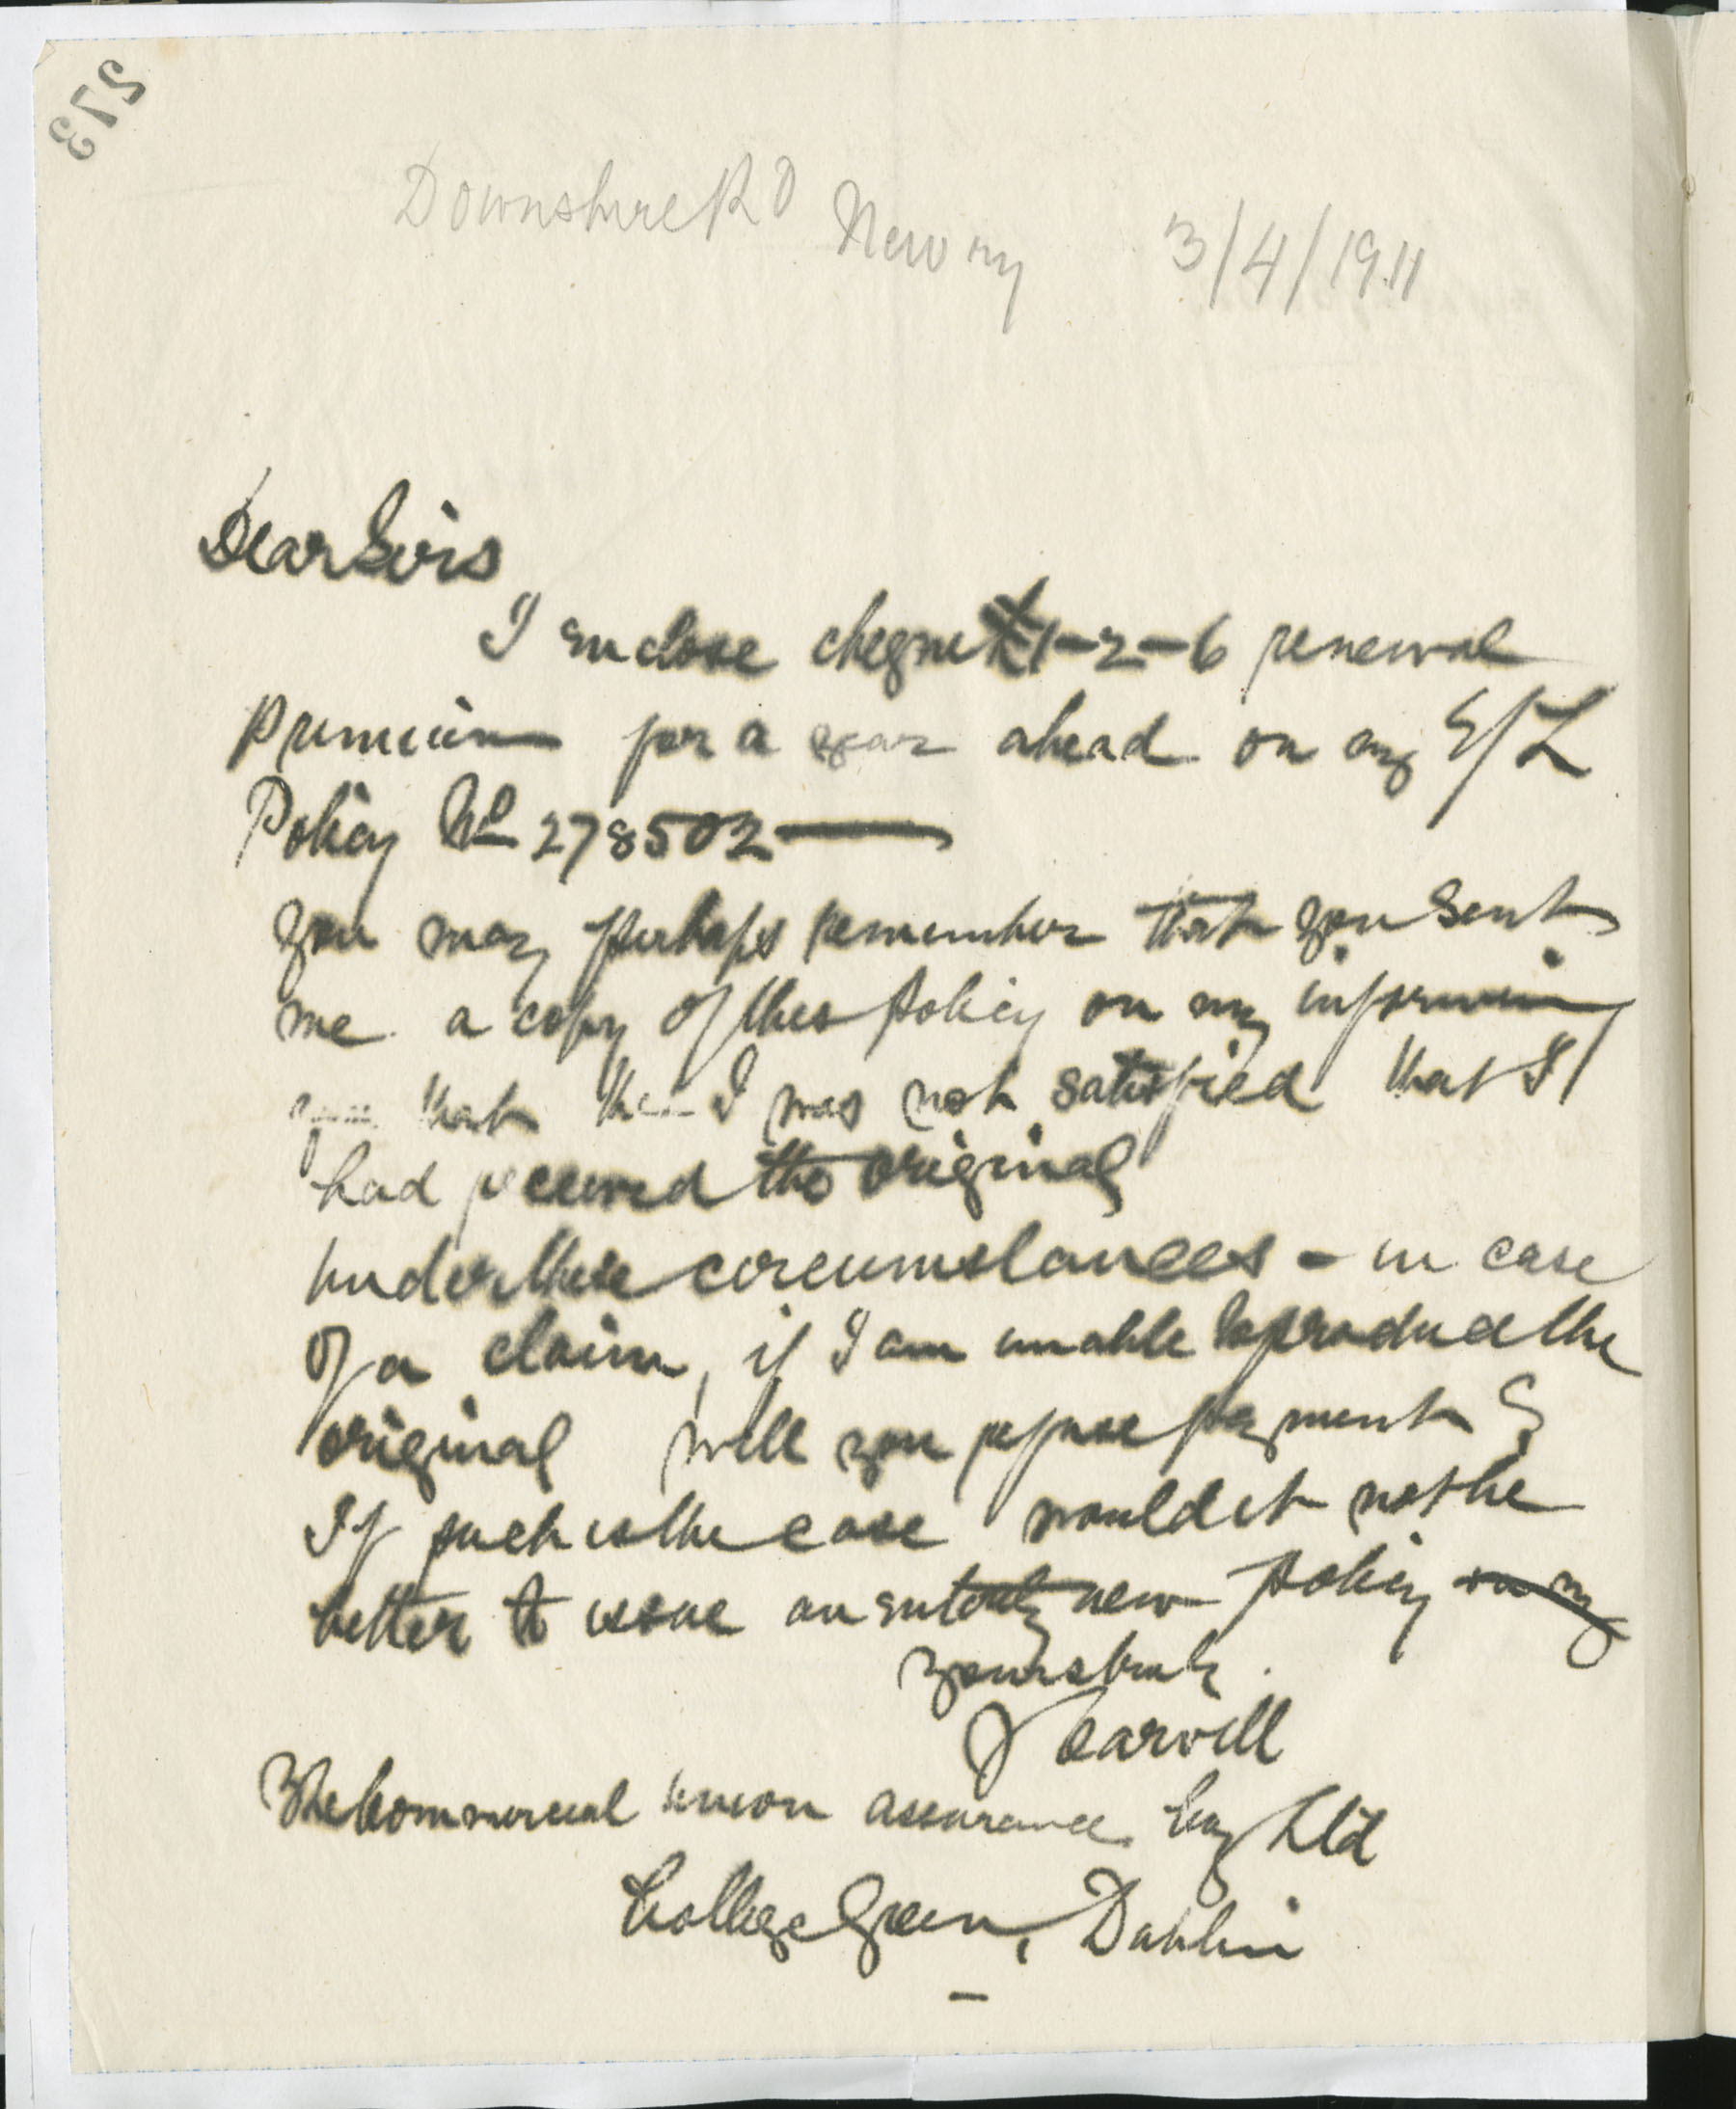 273
Downshire Rd Newry 3/4/1911
Dear Sirs
I enclose cheque £1-2-6 renewal
premium for a year ahead on my E/L
Policy No 278502
you may perhaps remember that you sent
me a copy of this policy on my informing
you that I was not satisfied that I
had received the original
under these circumstances - in case
of a claim, if I am unable to produce the
original will you refuse payment?
If such is the case would it not be
better to issue an entirely new policy on my
yours truly
J Carvill
The Commercial Union Assurance Coy Ltd
College Green, Dublin